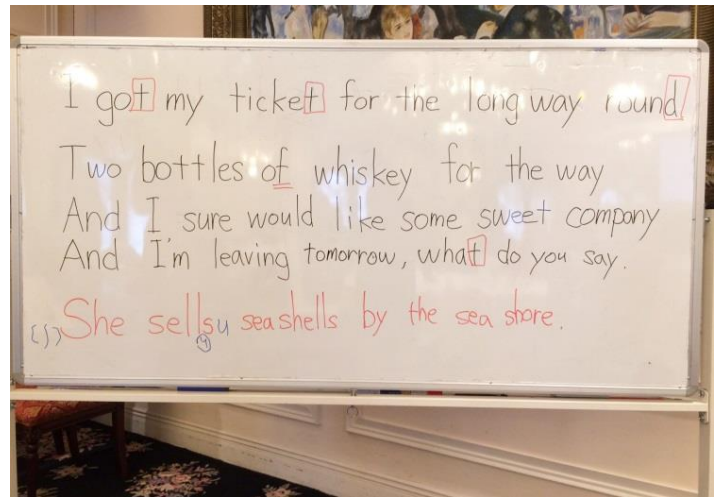 I got my ticket for the long way round
Two bottles of whiskey for the way
And I sure would like some sweet company
And I'm leaving tomorrow, what do you say.
She sells u seashells by the sea shore.